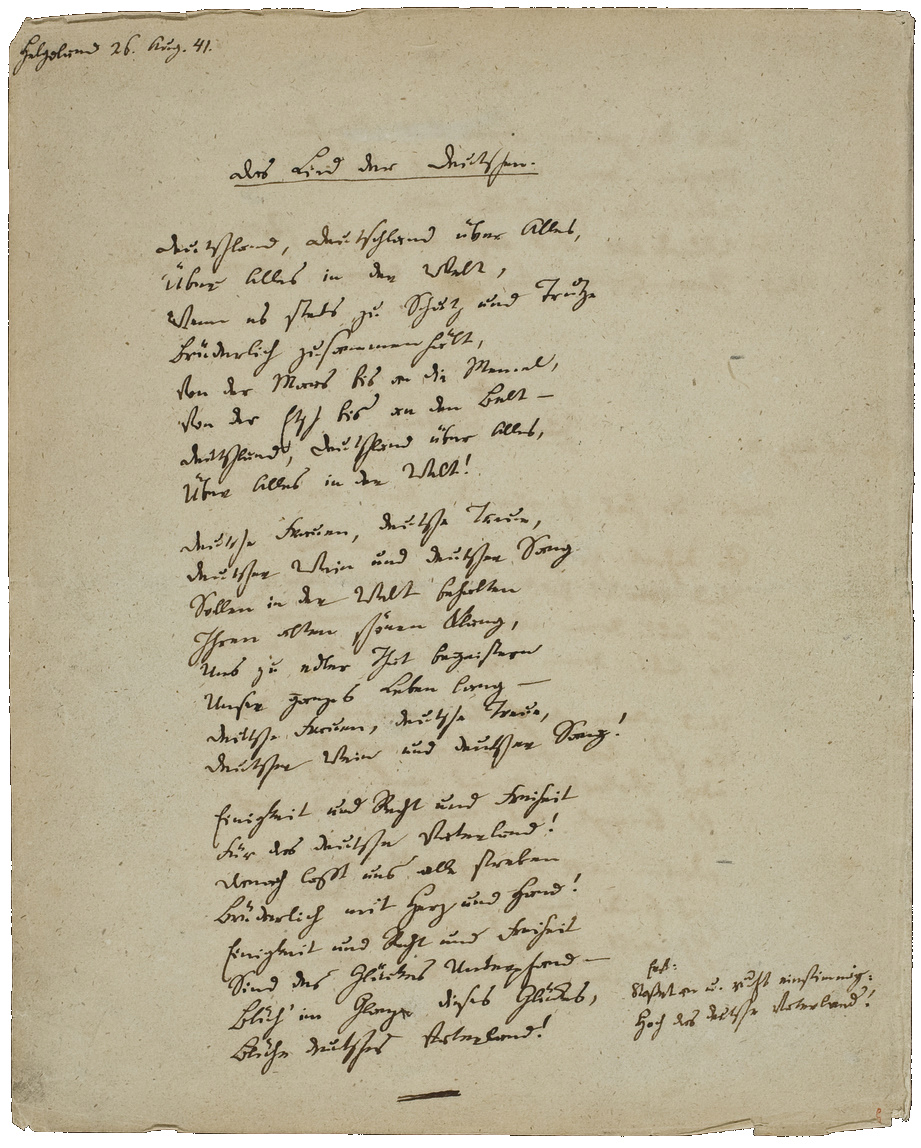 Helgoland 26. Aug. 41.
Das Lied der Deutschen.
Deutschland, Deutschland über Alles,
Über Alles in der Welt,
Wenn es stets zu Schutz und Trutze
Brüderlich zusammenhält,
Von der Maas bis an die Memel,
Von der Etsch bis an den Belt –
Deutschland, Deutschland über Alles,
Über Alles in der Welt!
Deutsche Frauen, deutsche Treue,
Deutscher Wein und deutscher Sang
Sollen in der Welt behalten
Ihren alten schönen Klang,
Uns zu edler That begeistern
Unser ganzes Leben lang –
Deutsche Frauen, deutsche Treue,
Deutscher Wein und deutscher Sang!
Einigkeit und Recht und Freiheit
Für das deutsche Vaterland!
Danach lasst uns alle streben
Brüderlich mit Herz und Hand!
Einigkeit und Recht und Freiheit
Sind des Glückes Unterpfand –
Blüh' im Glanze dieses Glückes,
Blühe deutsches Vaterland!
Stoßet an u. ruft einstimmig:
Hoch das deutsche Vaterland!